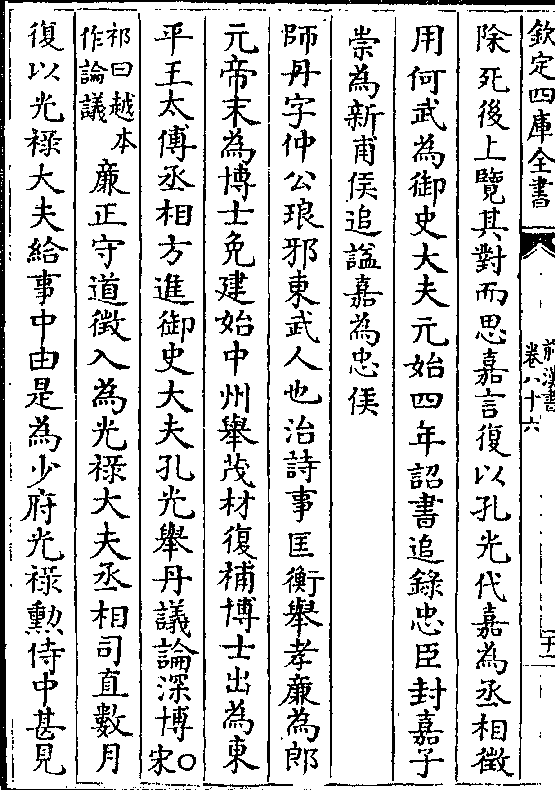 欽定四庫全書
前漢書
卷八十六
除死後上覽其對而思嘉言復以孔光代嘉為丞相徵
用何武為御史大夫元始四年詔書追錄忠臣封嘉子
崇為新甫侯追諡嘉為忠侯
師丹字仲公琅邪東武人也治詩事匡衡舉孝廉為郎
元帝末為博士免建始中州舉茂材復補博士出為東
平王太傅丞相方進御史大夫孔光舉丹議論深博○宋
祁曰越本
作論議
廉正守道徵入為光祿大夫丞相司直數月
復以光祿大夫給事中由是為少府光祿勲侍中甚見